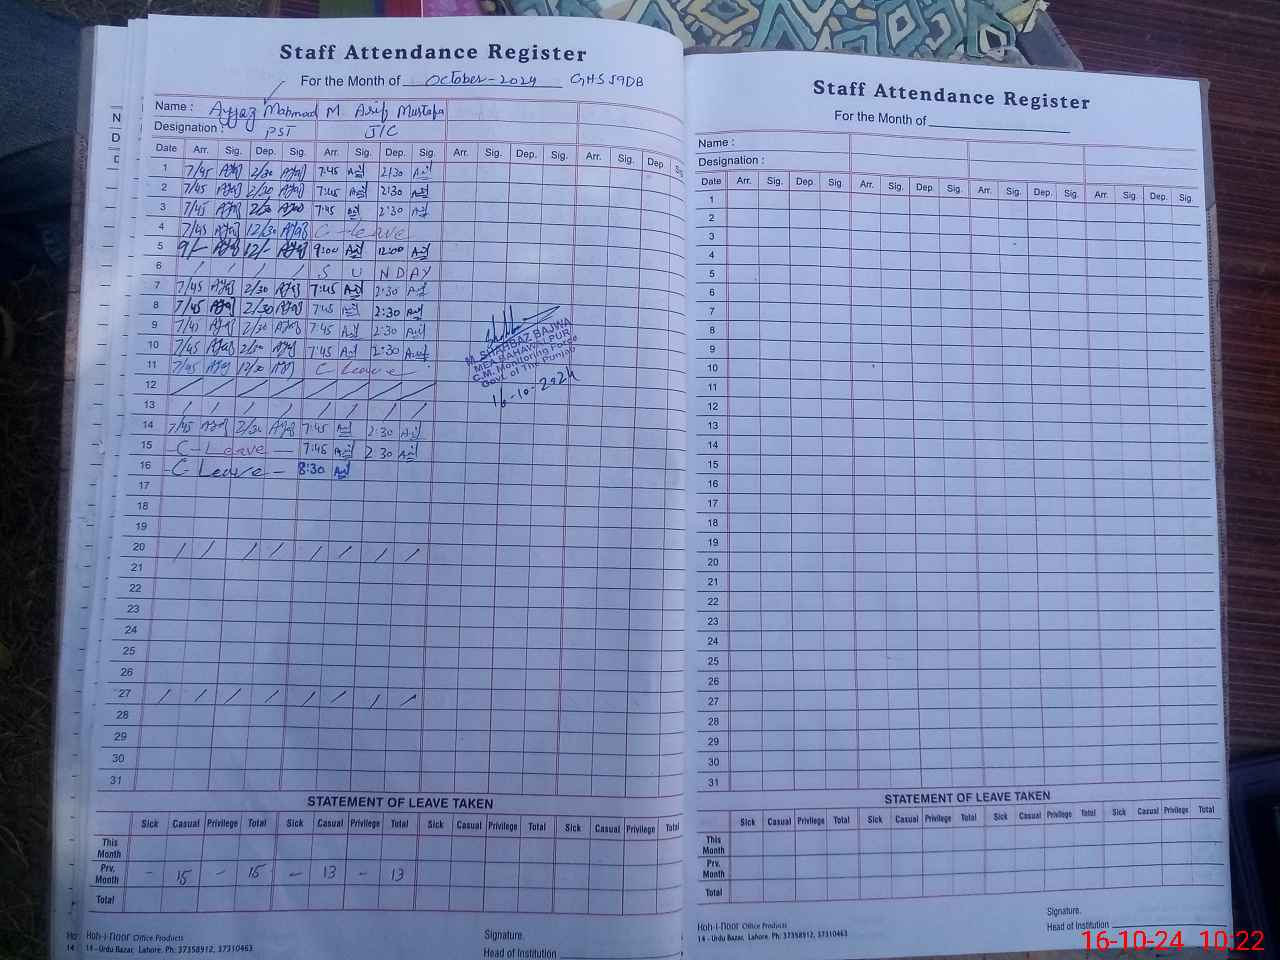 Staff Attendance Register
For the Month of October-2024 GHS 59DB
Name : Ayyaz Mahmood M. Arif Mustafa
Designation : PST J/C
Date Arr. Sig. Dep. Sig. Arr. Sig. Dep. Sig. Arr. Sig. Dep. Sig. Arr. Sig. Dep. Sig.
1 7/45 2/30 7:45 2:30
2 7/45 2/30 7:45 2:30
3 7/45 2/30 7:45 2:30
4 7/45 12/30 C-leave
5 9/- 12/- 9:00 12:00
6 / / / / S U N D A Y
7 7/45 2/30 7:45 2:30
8 7/45 2/30 7:45 2:30
9 7/45 2/30 7:45 2:30
10 7/45 2/30 7:45 2:30
11 7/45 12/30 C Leave
12 / / / / / / / /
13 / / / / / / / /
14 7/45 2/30 7:45 2:30
15 -C-Leave- 7:45 2:30
16 -C Leave- 8:30
17
18
19
20 / / / / / / / /
21
22
23
24
25
26
27 / / / / / / / /
28
29
30
31
M SHAHBAZ BAJWA
MEA BAHAWALPUR
C.M. Monitoring Force
Govt. of The Punjab
16-10-2024
STATEMENT OF LEAVE TAKEN
Sick Casual Privilege Total Sick Casual Privilege Total Sick Casual Privilege Total Sick Casual Privilege Total
This Month
Prv. Month - 15 - 15 - 13 - 13
Total
Koh-i-noor Office Products
14 - Urdu Bazar, Lahore. Ph: 37358912, 37310463
Signature.
Head of Institution
Staff Attendance Register
For the Month of
Name :
Designation :
Date Arr. Sig. Dep. Sig. Arr. Sig. Dep. Sig. Arr. Sig. Dep. Sig. Arr. Sig. Dep. Sig.
1
2
3
4
5
6
7
8
9
10
11
12
13
14
15
16
17
18
19
20
21
22
23
24
25
26
27
28
29
30
31
STATEMENT OF LEAVE TAKEN
Sick Casual Privilege Total Sick Casual Privilege Total Sick Casual Privilege Total Sick Casual Privilege Total
This Month
Prv. Month
Total
Koh-i-noor Office Products
14 - Urdu Bazar, Lahore. Ph: 37358912, 37310463
Signature.
Head of Institution
16-10-24 10:22